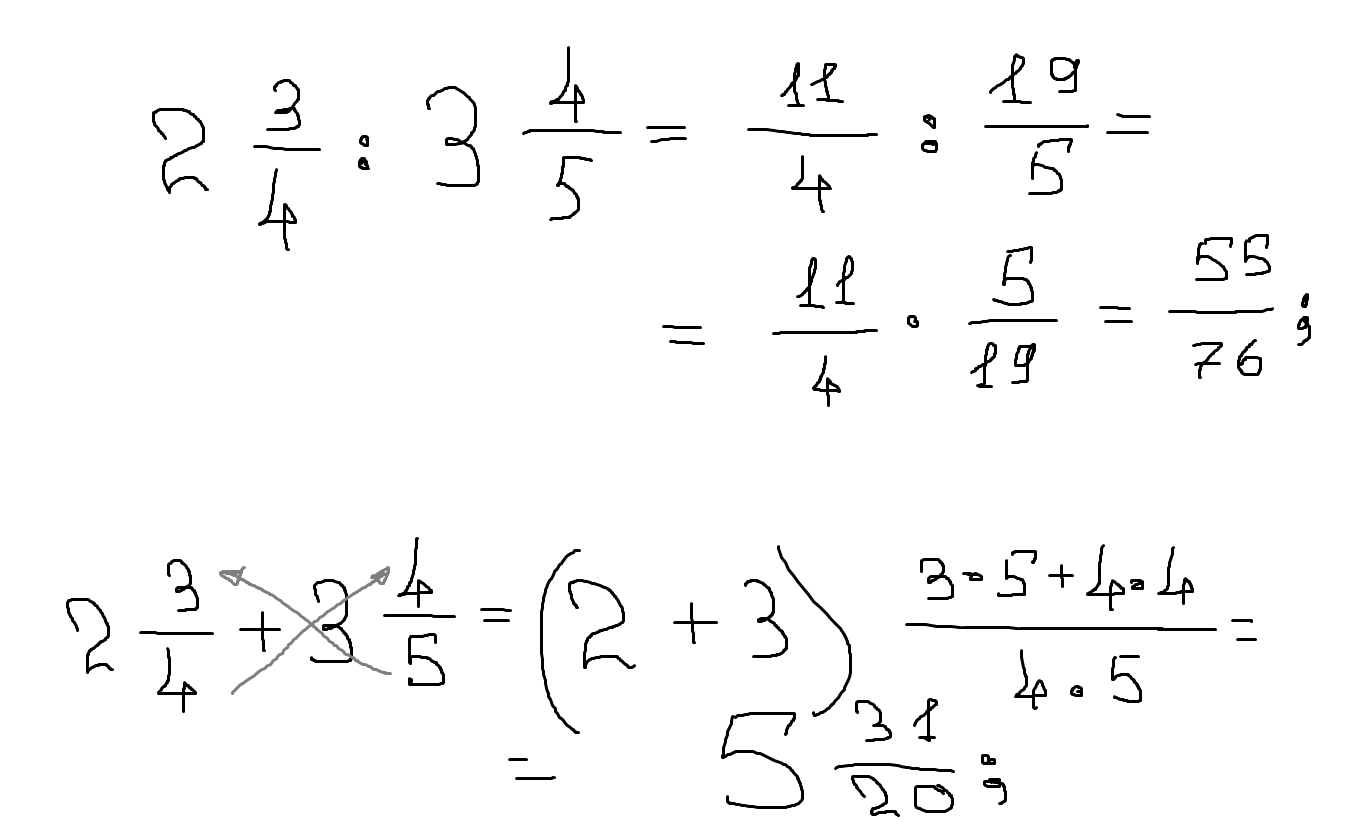 2 3/4 : 3 4/5 = 11/4 : 19/5 =
= 11/4 · 5/19 = 55/76 ;
2 3/4 + 3 4/5 = (2 + 3) (3·5+4·4)/(4·5) =
= 5 31/20 ;